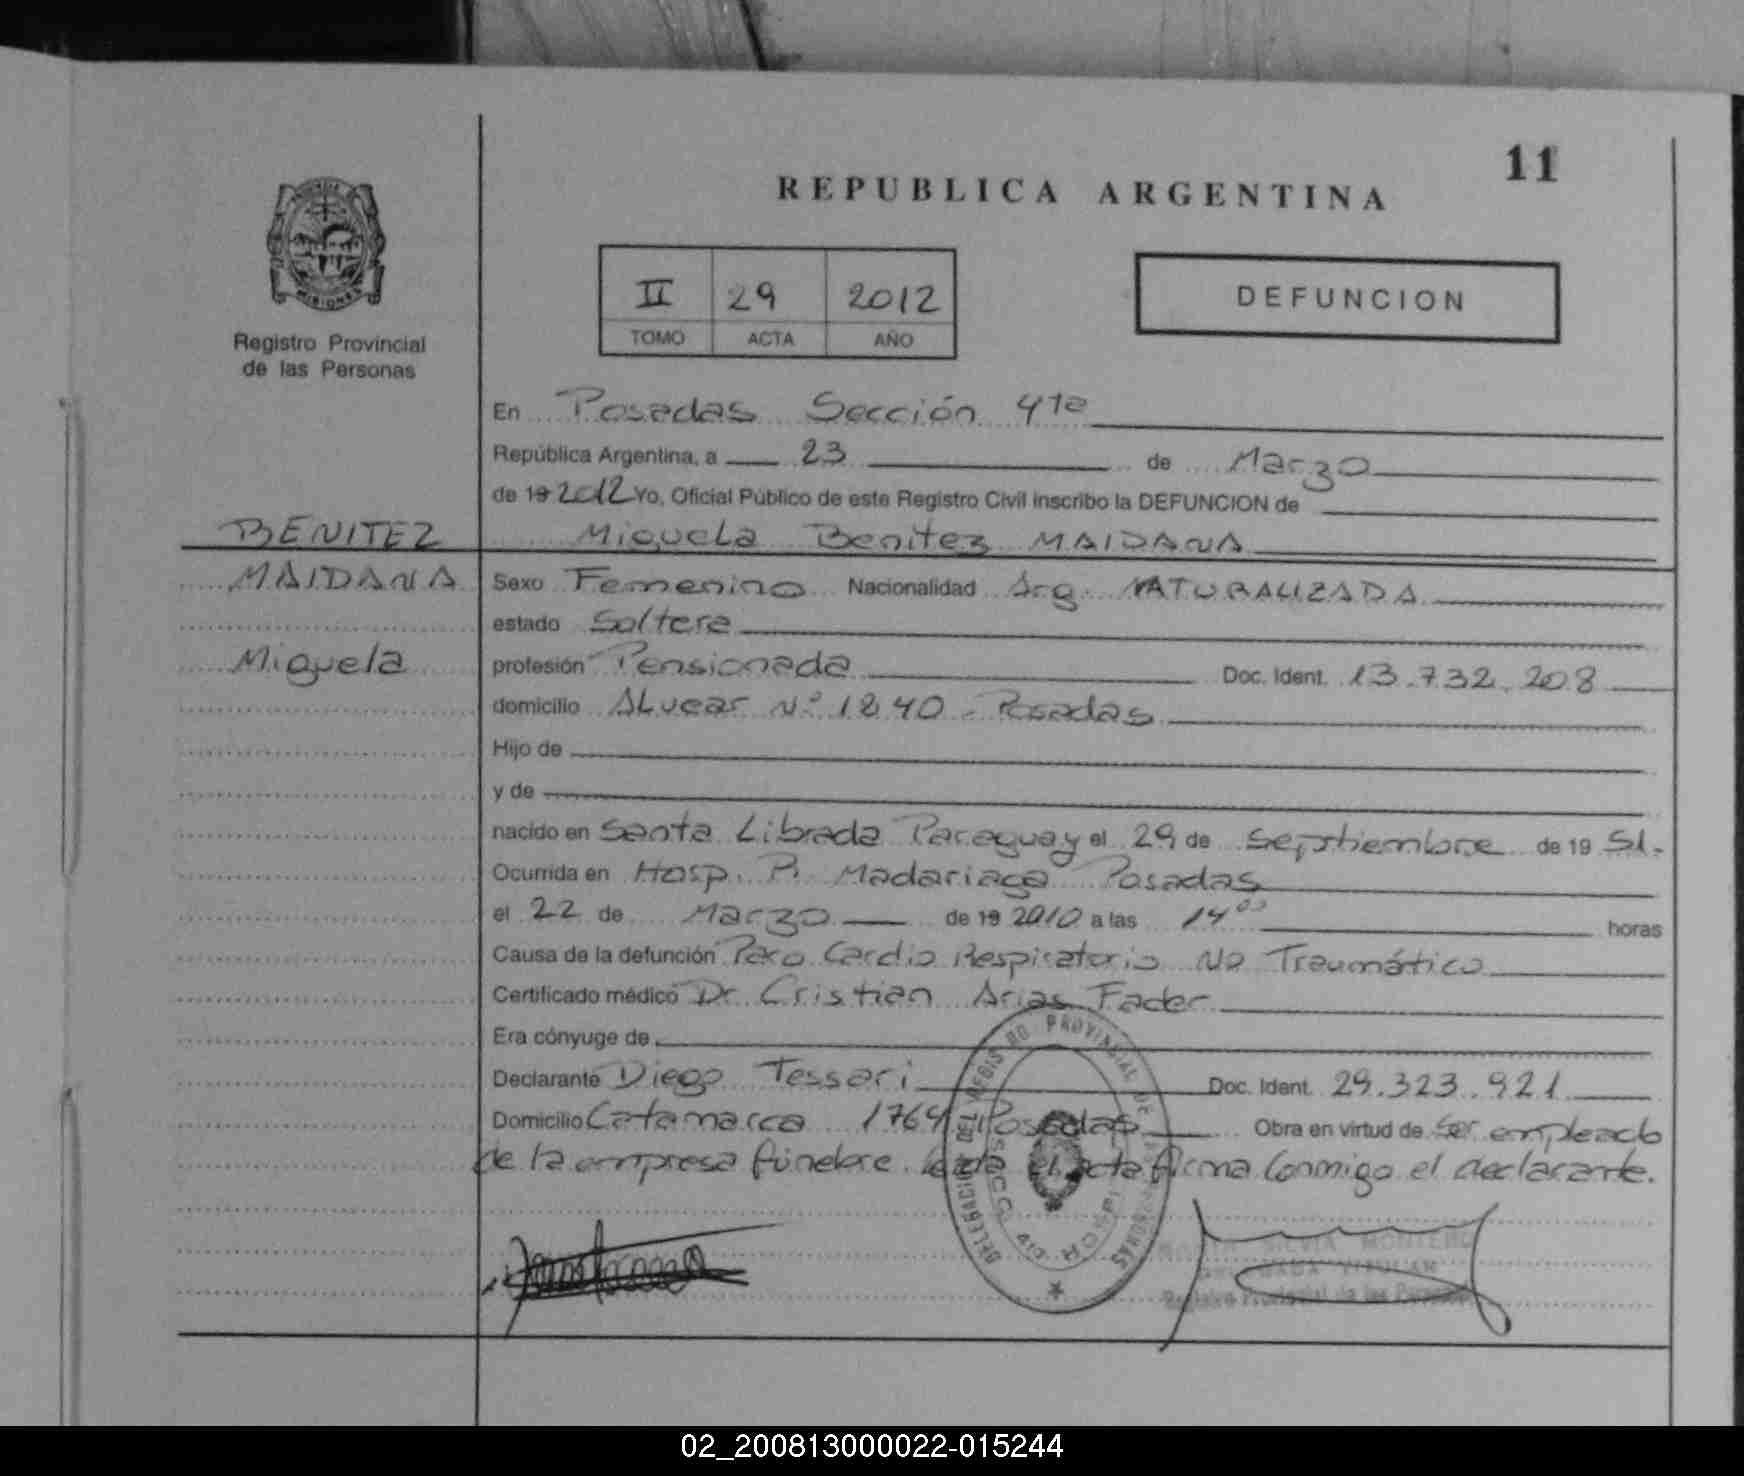 11
REPUBLICA ARGENTINA
II 29 2012
TOMO ACTA AÑO
DEFUNCION
MISIONES
Registro Provincial
de las Personas
En Posadas Sección 4ta
República Argentina, a 23 de Marzo
de 19 2012 Yo, Oficial Público de este Registro Civil inscribo la DEFUNCION de
BENITEZ
Miguela Benitez MAIDANA
MAIDANA
Sexo Femenino Nacionalidad Arg. NATURALIZADA
estado Soltera
Miguela
profesión Pensionada Doc. Ident. 13.732.208
domicilio ALvear Nº 1240 - Posadas
Hijo de
y de
nacido en Santa Librada Paraguay el 29 de Septiembre de 19 51.
Ocurrida en Hosp. P. Madariaga Posadas
el 22 de Marzo de 19 2010 a las 14 00 horas
Causa de la defunción Paro Cardio Respiratorio No Traumático
Certificado médico Dr. Cristian Arias Fader
Era cónyuge de
Declarante Diego Tessari Doc. Ident. 29.323.921
Domicilio Catamarca 1764 Posadas Obra en virtud de ser empleado
de la empresa fúnebre. Leída el acta firma conmigo el declarante.
DELEGACION DEL REGISTRO PROVINCIAL DE LAS PERSONAS
SECC. 4ta
SILVIA MONTERO
Registro Provincial de las Personas
02_200813000022-015244